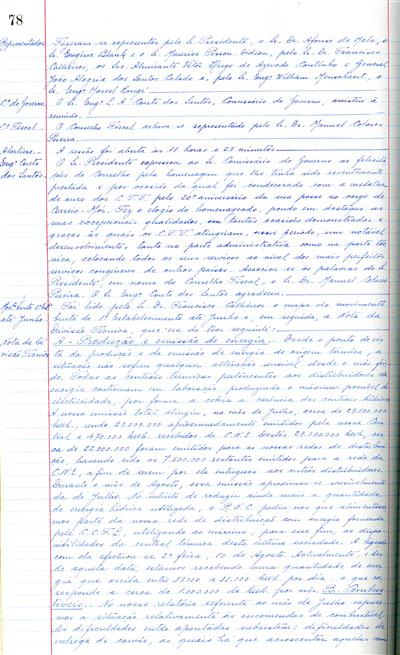 78
Representados Fizeram-se representar pelo Sr. Presidente, o Sr. Dr. Afonso de Melo, o
Sr. Eugène Blank e o Sr. Maurice Pierson Eidien, pelo Sr. Dr. Francisco
Calheiros, os Srs. Almirante Vitor Hugo de Azevedo Coutinho e General
João Alegria dos Santos Calado e, pelo Sr. Engº William Menschaert, o
Sr. Engº Marcel Rongé
Cº do Governo O Sr. Engº L. A. Couto dos Santos, Comissário do Governo, assistiu à
reunião.
Cº Fiscal O Conselho Fiscal achava-se representado pelo Sr. Dr. Manuel Colares
Pereira.
Abertura A sessão foi aberta às 11 horas e 25 minutos
Engº Couto dos Santos O Sr. Presidente expressou ao Sr. Comissário do Governo as felicita-
ções do Conselho pela homenagem que lhe tinha sido recentemente
prestada e por ocasião da qual foi condecorado com a medalha
de ouro dos C.T.T. pelo 20º aniversário da sua posse no cargo de
Correio-Mor. Fez o elogio do homenageado, pondo em destaque as
suas excepcionais qualidades, em tantas ocasiões demonstradas e
graças às quais os C.T.T. atingiram, nesse período, um notável
desenvolvimento, tanto na parte administrativa como na parte téc-
nica, colocando todos os seus serviços ao nível dos mais perfeitos
serviços congéneres de outros países. Associou-se às palavras do Sr.
Presidente, em nome do Conselho Fiscal, o Sr. Dr. Manuel Colares
Pereira. O Sr. Engº Couto dos Santos agradeceu.
até Junho Foi lido pelo Sr. Dr. Francisco Calheiros o mapa do movimento
bruto do 1º Estabelecimento até Junho e, em seguida, a Nota da
Nota da Divisão Técnica Divisão Técnica, que é do teor seguinte:
A - Produção e emissão de energia. Desde o ponto de vis-
ta da produção e da emissão de energia de origem térmica, a
situação não sofreu qualquer alteração sensível desde o mês fin-
do. Todas as centrais térmicas pertencentes aos distribuidores de
energia continuam em laboração produzindo o máximo possível de
electricidade, por forma a cobrir a carência das centrais hídricas
A nossa emissão total atingiu, no mês de Julho, cerca de 29.000.000
kwh., sendo aproximadamente emitidos pela nossa Cen-
tral e 470.000 kwh. recebidos da C.N.E. Destes 29.500.000 kwh, cer-
ca de 22.000.000 foram emitidos para as nossas redes de distribui-
ção, havendo sido os 7.500.000 restantes emitidos para a rede da
C.N.E., a fim de serem por ela entregues aos outros distribuidores.
Durante o mês de Agosto, essa emissão aproximar-se-á sensivelmente
da de Julho. No intuito de reduzir ainda mais a quantidade
de energia hídrica utilizada, o R.N.C. pediu-nos que alimentásse-
mos parte da nossa rede de distribuição com energia fornecida
pela C.C.F.L., utilizando ao máximo, para esse fim, as dispo-
nibilidades da central térmica desta última sociedade. A ligação
com ela efectuou-se 2ª feira, 10 de Agosto. Actualmente, e des-
de aquela data, estamos recebendo uma quantidade de ener-
gia que oscila entre 30.000 a 35.000 kwh. por dia, o que cor-
responde a cerca de 1.000.000 de kwh. por mês. B - Combus-
tíveis. No nosso relatório referente ao mês de Julho expuse-
mos a situação relativamente às encomendas de combustível.
As dificuldades então apontadas subsistem: dificuldades de
entrega de carvão, às quais há que acrescentar aquelas com